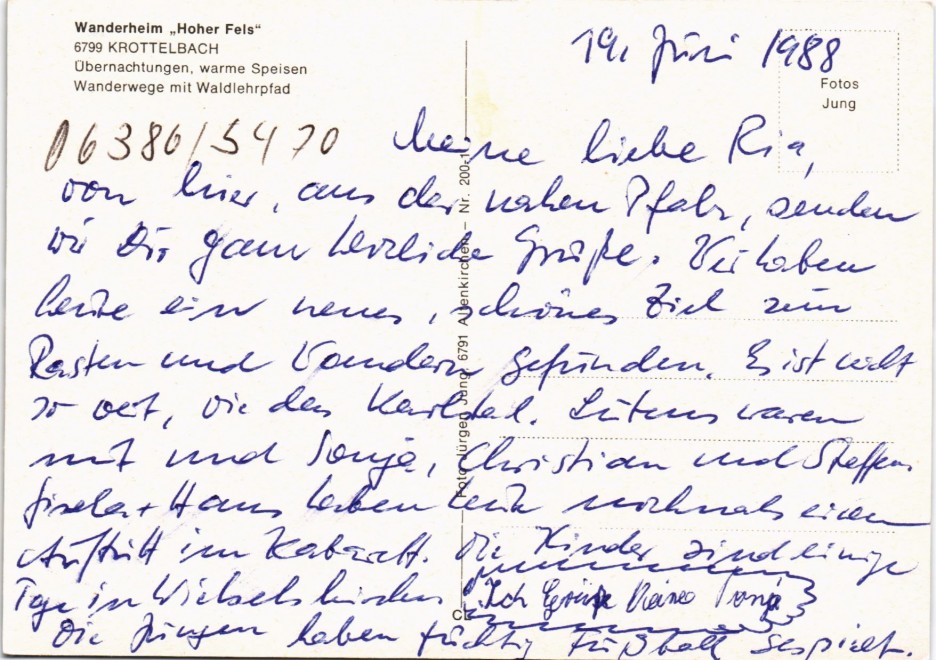 Wanderheim „Hoher Fels“
6799 KROTTELBACH
Übernachtungen, warme Speisen
Wanderwege mit Waldlehrpfad
19. Juni 1988
Fotos
Jung
06386/5470
Meine liebe Ria,
von hier, aus der nahen Pfalz, senden
wir Dir ganz herzliche Grüße. Wir haben
heute ein neues, schönes Ziel zum
Rasten und Wandern gefunden. Es ist nicht
so weit, wie das Karlstal. Lutens waren
mit und Sonja, Christian und Steffen.
Gisela + Hans haben heute nochmals einen
Auftritt im Kabarett. Die Kinder sind einige
Tage in Wiebelskirchen
Ich Grüße Sonja
Die Jungen haben tüchtig Fußball gespielt.
Foto: Jürgen Jung, 6791 Altenkirchen – Nr. 200-1